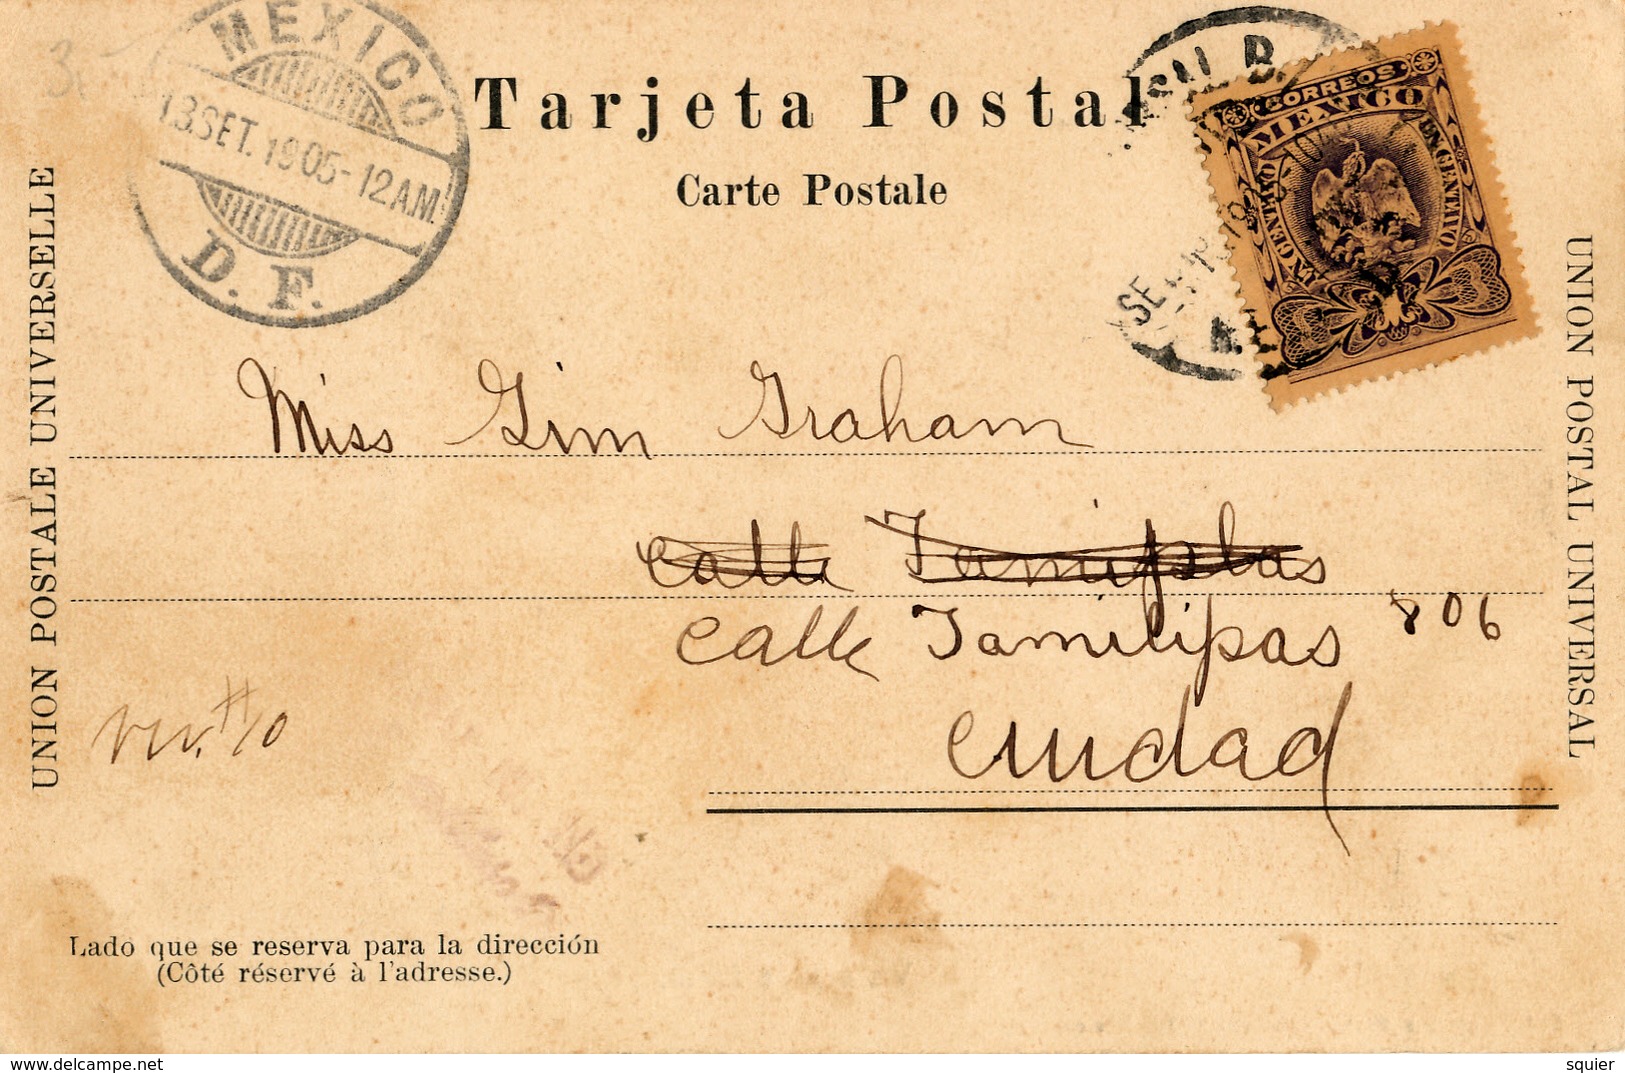 3.-
MEXICO
13.SET.1905-12A.M.
D. F.
Tarjeta Postal
Carte Postale
B.
CORREOS
MEXICO
UN CENTAVO
UN CENTAVO
UNION POSTALE UNIVERSELLE
UNION POSTAL UNIVERSAL
Miss Gim Graham
Calle Tamiplas
Calle Tamilipas 806
Ciudad
#10
Lado que se reserva para la dirección
(Côté réservé à l'adresse.)
squier